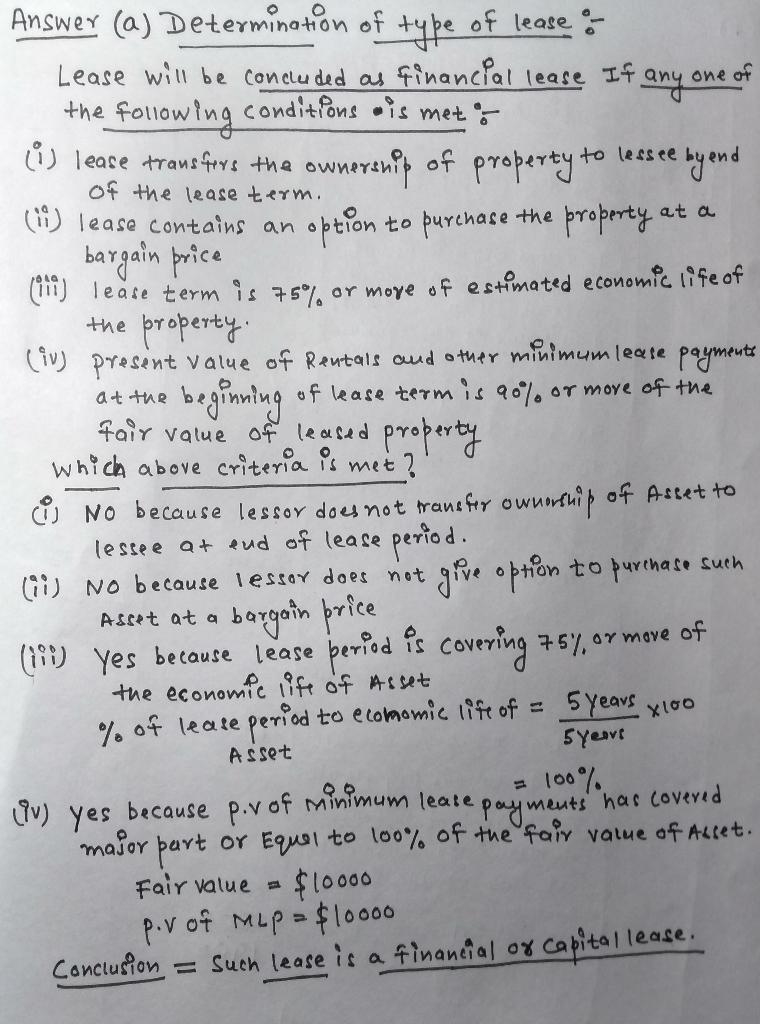 Answer (a) Determination of type of lease :-
Lease will be concluded as financial lease If any one of
the following conditions is met :-
(i) lease transfers the ownership of property to lessee by end
of the lease term.
(ii) lease contains an option to purchase the property at a
bargain price
(iii) lease term is 75% or more of estimated economic life of
the property.
(iv) present value of Rentals and other minimum lease payments
at the beginning of lease term is 90% or more of the
fair value of leased property
which above criteria is met ?
(i) NO because lessor does not transfer ownership of Asset to
lessee at end of lease period.
(ii) NO because lessor does not give option to purchase such
Asset at a bargain price
(iii) Yes because lease period is covering 75% or more of
the economic life of Asset
% of lease period to ecomomic life of = 5 years x100
Asset 5 years
= 100%
(iv) yes because p.v of minimum lease payments has covered
major part or Equal to 100% of the fair value of Asset.
Fair value = $10000
p.v of MLP = $10000
Conclusion = Such lease is a financial or capital lease.